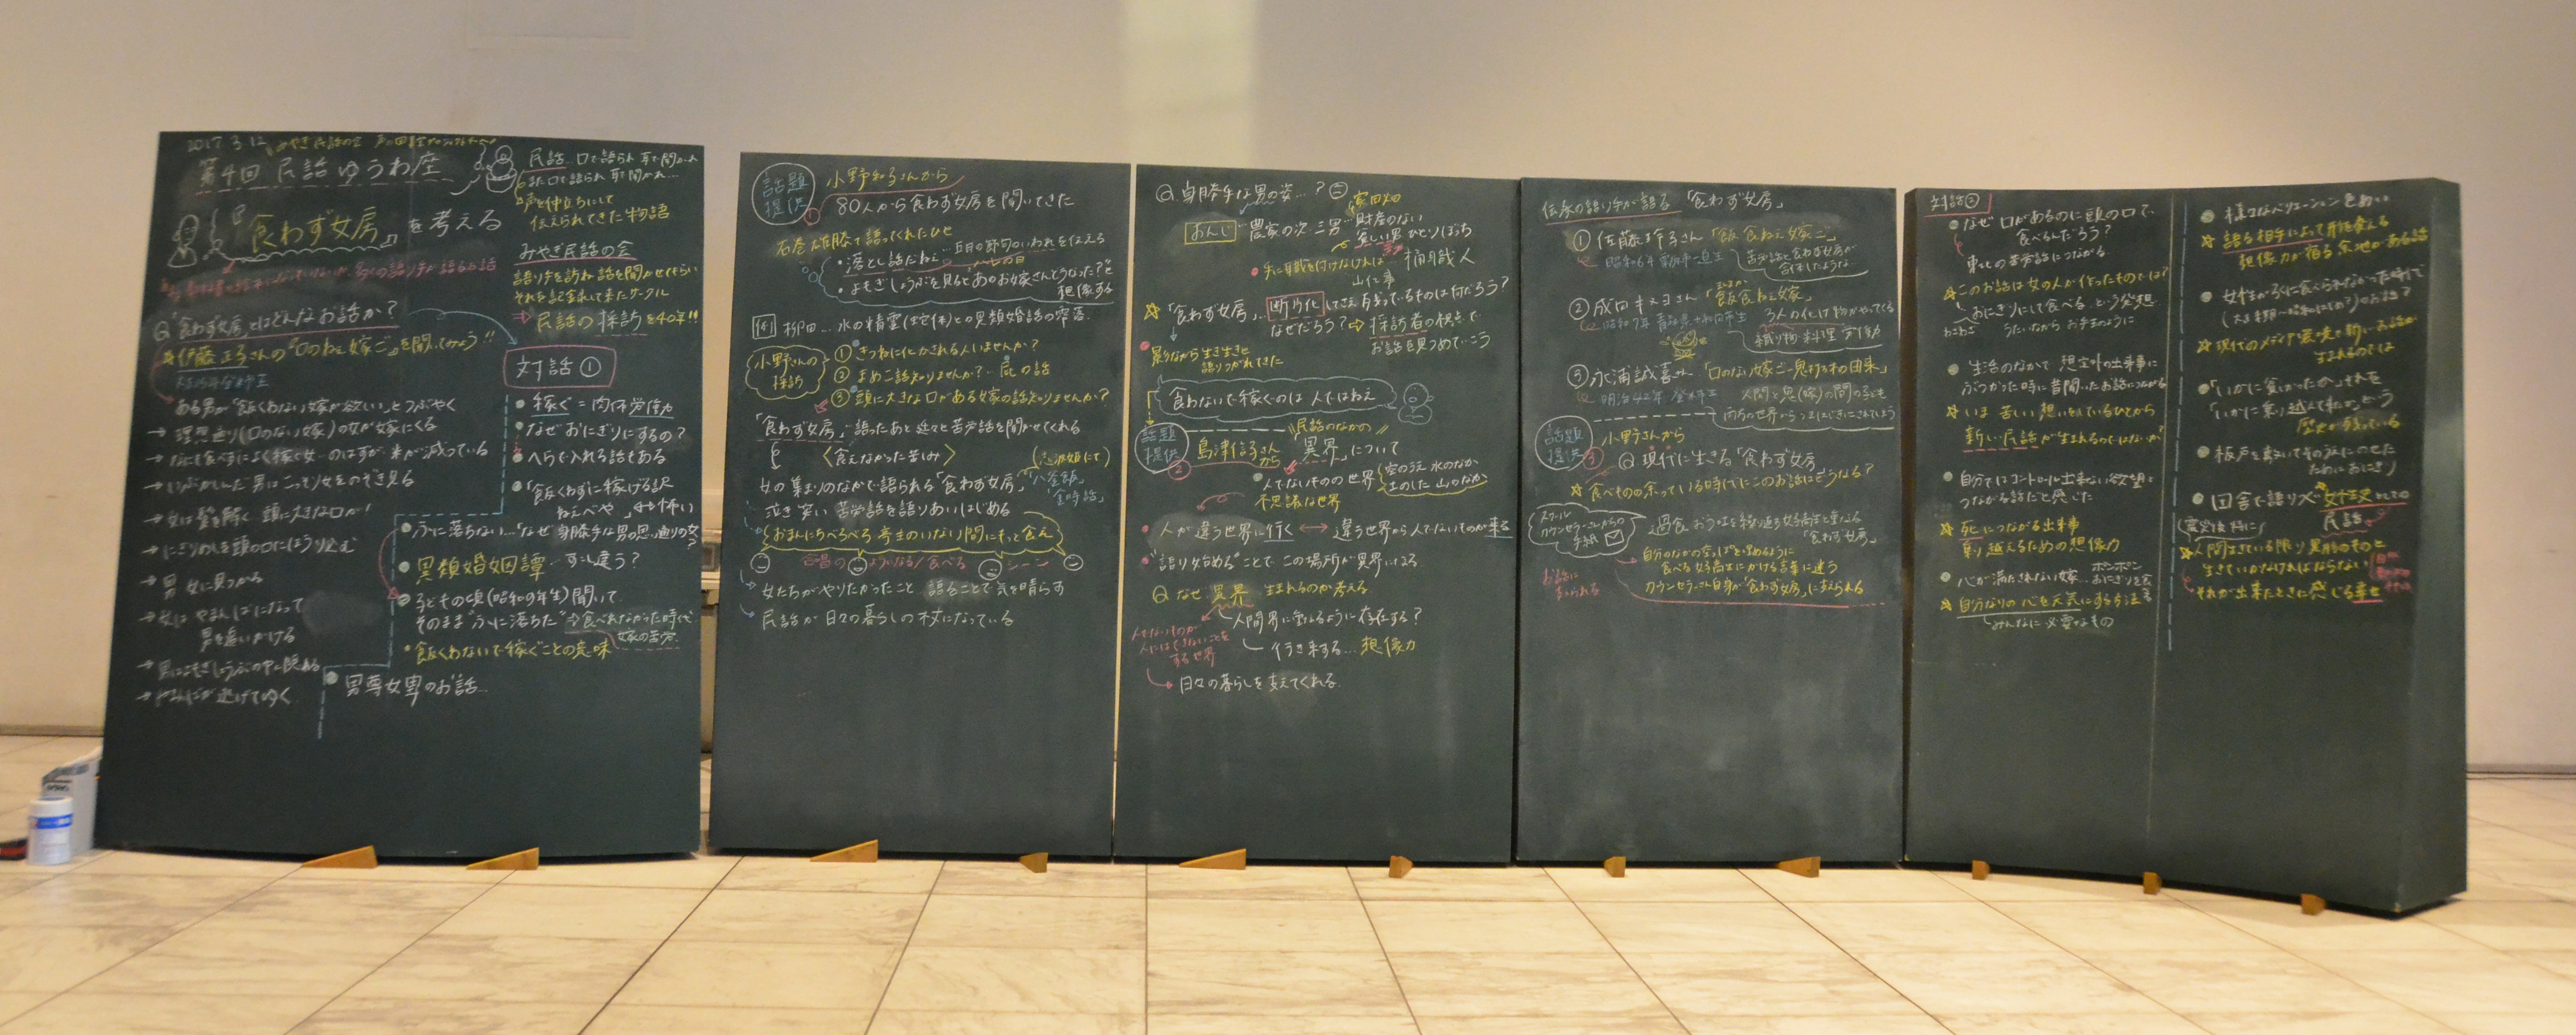 2017. 3. 12 みやぎ民話の会
第4回 民話 ゆうわ座
『食わず女房』を考える
Q "食わず女房"とはどんなお話か？
★伊藤正子さんの『口のねえ嫁ご』を聞いてみよう!!
ある男が"飯くわない嫁が欲しい"とつぶやく
→ 理想通り(口のない嫁)の女が嫁にくる
→ なにも食べずによく稼ぐ女…のはずが、米が減っている
→ いぶかしんだ男はこっそり女をのぞき見る
→ 女は髪を解く 頭に大きな口が!
→ にぎりめしを頭の口にほうり込む
→ 男 女に見つかる
→ 女は やまんばになって
男を追いかける
→ 男はよもぎしょうぶの中に隠れる
→ やまんばが逃げてゆく
民話…口で語られ 耳で聞かれ
また口で語られ 耳で聞かれ…
声を仲立ちにして
伝えられてきた物語
みやぎ民話の会
語り手を訪ね 話を聞かせてもらい
それを記録して来たサークル
⇒ 民話の採訪を40年!!
対話①
稼ぐ＝肉体労働力
なぜおにぎりにするの？
へらで入れる話もある
「飯くわずに稼げる訳
ねえべや」 怖い
ふに落ちない…なぜ身勝手な男の思い通りの女？
異類婚姻譚 すこし違う？
子どもの頃(昭和9年生)聞いて
そのまま"ふに落ちた"⇒食べれなかった時代
嫁の苦労
飯くわないで稼ぐことの意味
男尊女卑のお話…
話題提供①
小野和子さんから
80人から食わず女房を聞いてきた
石巻雄勝で語ってくれたひと
・落とし話だねえ…五月の節句のいわれを伝える
・よもぎしょうぶを見るとあのお嫁さんどうなった？と
想像する
例 柳田…水の精霊(蛇体)との異類婚話の零落
小野さんの採訪
① きつねに化かされる人いませんか？
② まめこ話知りませんか？…屁の話
③ 頭に大きな口がある嫁の話知りませんか？
「食わず女房」語ったあと延々と苦労話を聞かせてくれる
〈食えなかった苦しみ〉
女の集まりのなかで語られる「食わず女房」
泣き笑い 苦労話を語りあいはじめる
おまんにちべろべろ 亭主のいない間にもっと食え
合唱のようになる/食べるシーン
女たちがやりたかったこと 語ることで気を晴らす
民話が日々の暮らしの杖になっている
Q 身勝手な男の姿…？
おんじ 農家の次、三男…財産のない
家 田 畑
貧しい男 ひとりぼっち
手に職を付けなければ 桶職人
山仕事
☆「食わず女房」…断片化してさえ息づいているものは何だろう？
なぜだろう？⇒採訪者の視点で
お話を見つめていこう
語りつがれてきた
食わないで稼ぐのは人ではねえ
話題提供②
島津信子さんから
"民話のなかの
異界"について
人でないものの世界
空のうえ 水のなか
土のした 山のなか
不思議な世界
・人が違う世界に行く ⟷ 違う世界から人でないものが来る
・"語り始める"ことで この場所が異界になる
Q なぜ 異界 生まれるのか考える
人間界に重なるように存在する？
行き来する…想像力
人でないものが
人にはできないことを
する世界
→日々の暮らしを支えてくれる
伝承の語り手が語る「食わず女房」
① 佐藤玲子さん「飯食ねえ嫁ご」
苦労話と食わず女房が
合体したような
② 成田キヌヨさん「飯食ねえ嫁」
3人の化け物がやってくる
織り物 料理 労働
③ 永浦誠喜さん「口のない嫁ご―鬼打ち木の由来」
明治42年 人間と鬼(嫁)の間の子ども
両方の世界からつまはじきにされてしまう
話題提供③
小野さんから
Q 現代に生きる「食わず女房」
★食べものの余っている時代にこのお話はどうなる？
スクールカウンセラーさんからの手紙
過食 おう吐を繰り返す女子高生と重なる
「食わず女房」
自分のなかの空っぽを埋めるように
食べる女子高生にかける言葉に迷う
カウンセラーさん自身が「食わず女房」に支えられる
お話に支えられる
対話②
なぜ口があるのに頭の口で
食べるんだろう？
東北の苦労話につながる
☆このお話は女の人が作ったものでは？
おにぎりにして食べるという発想
うたいながら お手玉のように
生活のなかで 想定外の出来事に
ぶつかった時に 昔聞いたお話につながる
☆いま 苦しい想いをしているひとから
新しい民話が生まれるのではないか？
自分ではコントロール出来ない欲望と
つながる話だと感じた
☆死につながる出来事
乗り越えるための想像力
心が満たされない嫁…ポンポンおにぎりを食べる
☆自分なりの心を天気にする方法
みんなに必要なもの
様々なバリエーション
☆語る相手によって形を変える
想像力が宿る余地がある話
女性がろくに食べられなかった時代
のお話？
☆現代のメディア 新しいお話が
生まれるのでは
「いかに貧しかったか」それを
「いかに乗り越えて来たか」という
歴史が残っている
板戸を敷いてその上にのせた
ためにおにぎり
田舎で語り継ぐ 女性史としての
民話
(震災後 特に)
☆人間 生きている限り 異形のものと
生きていかなければならない
それが出来たときに感じる幸せ